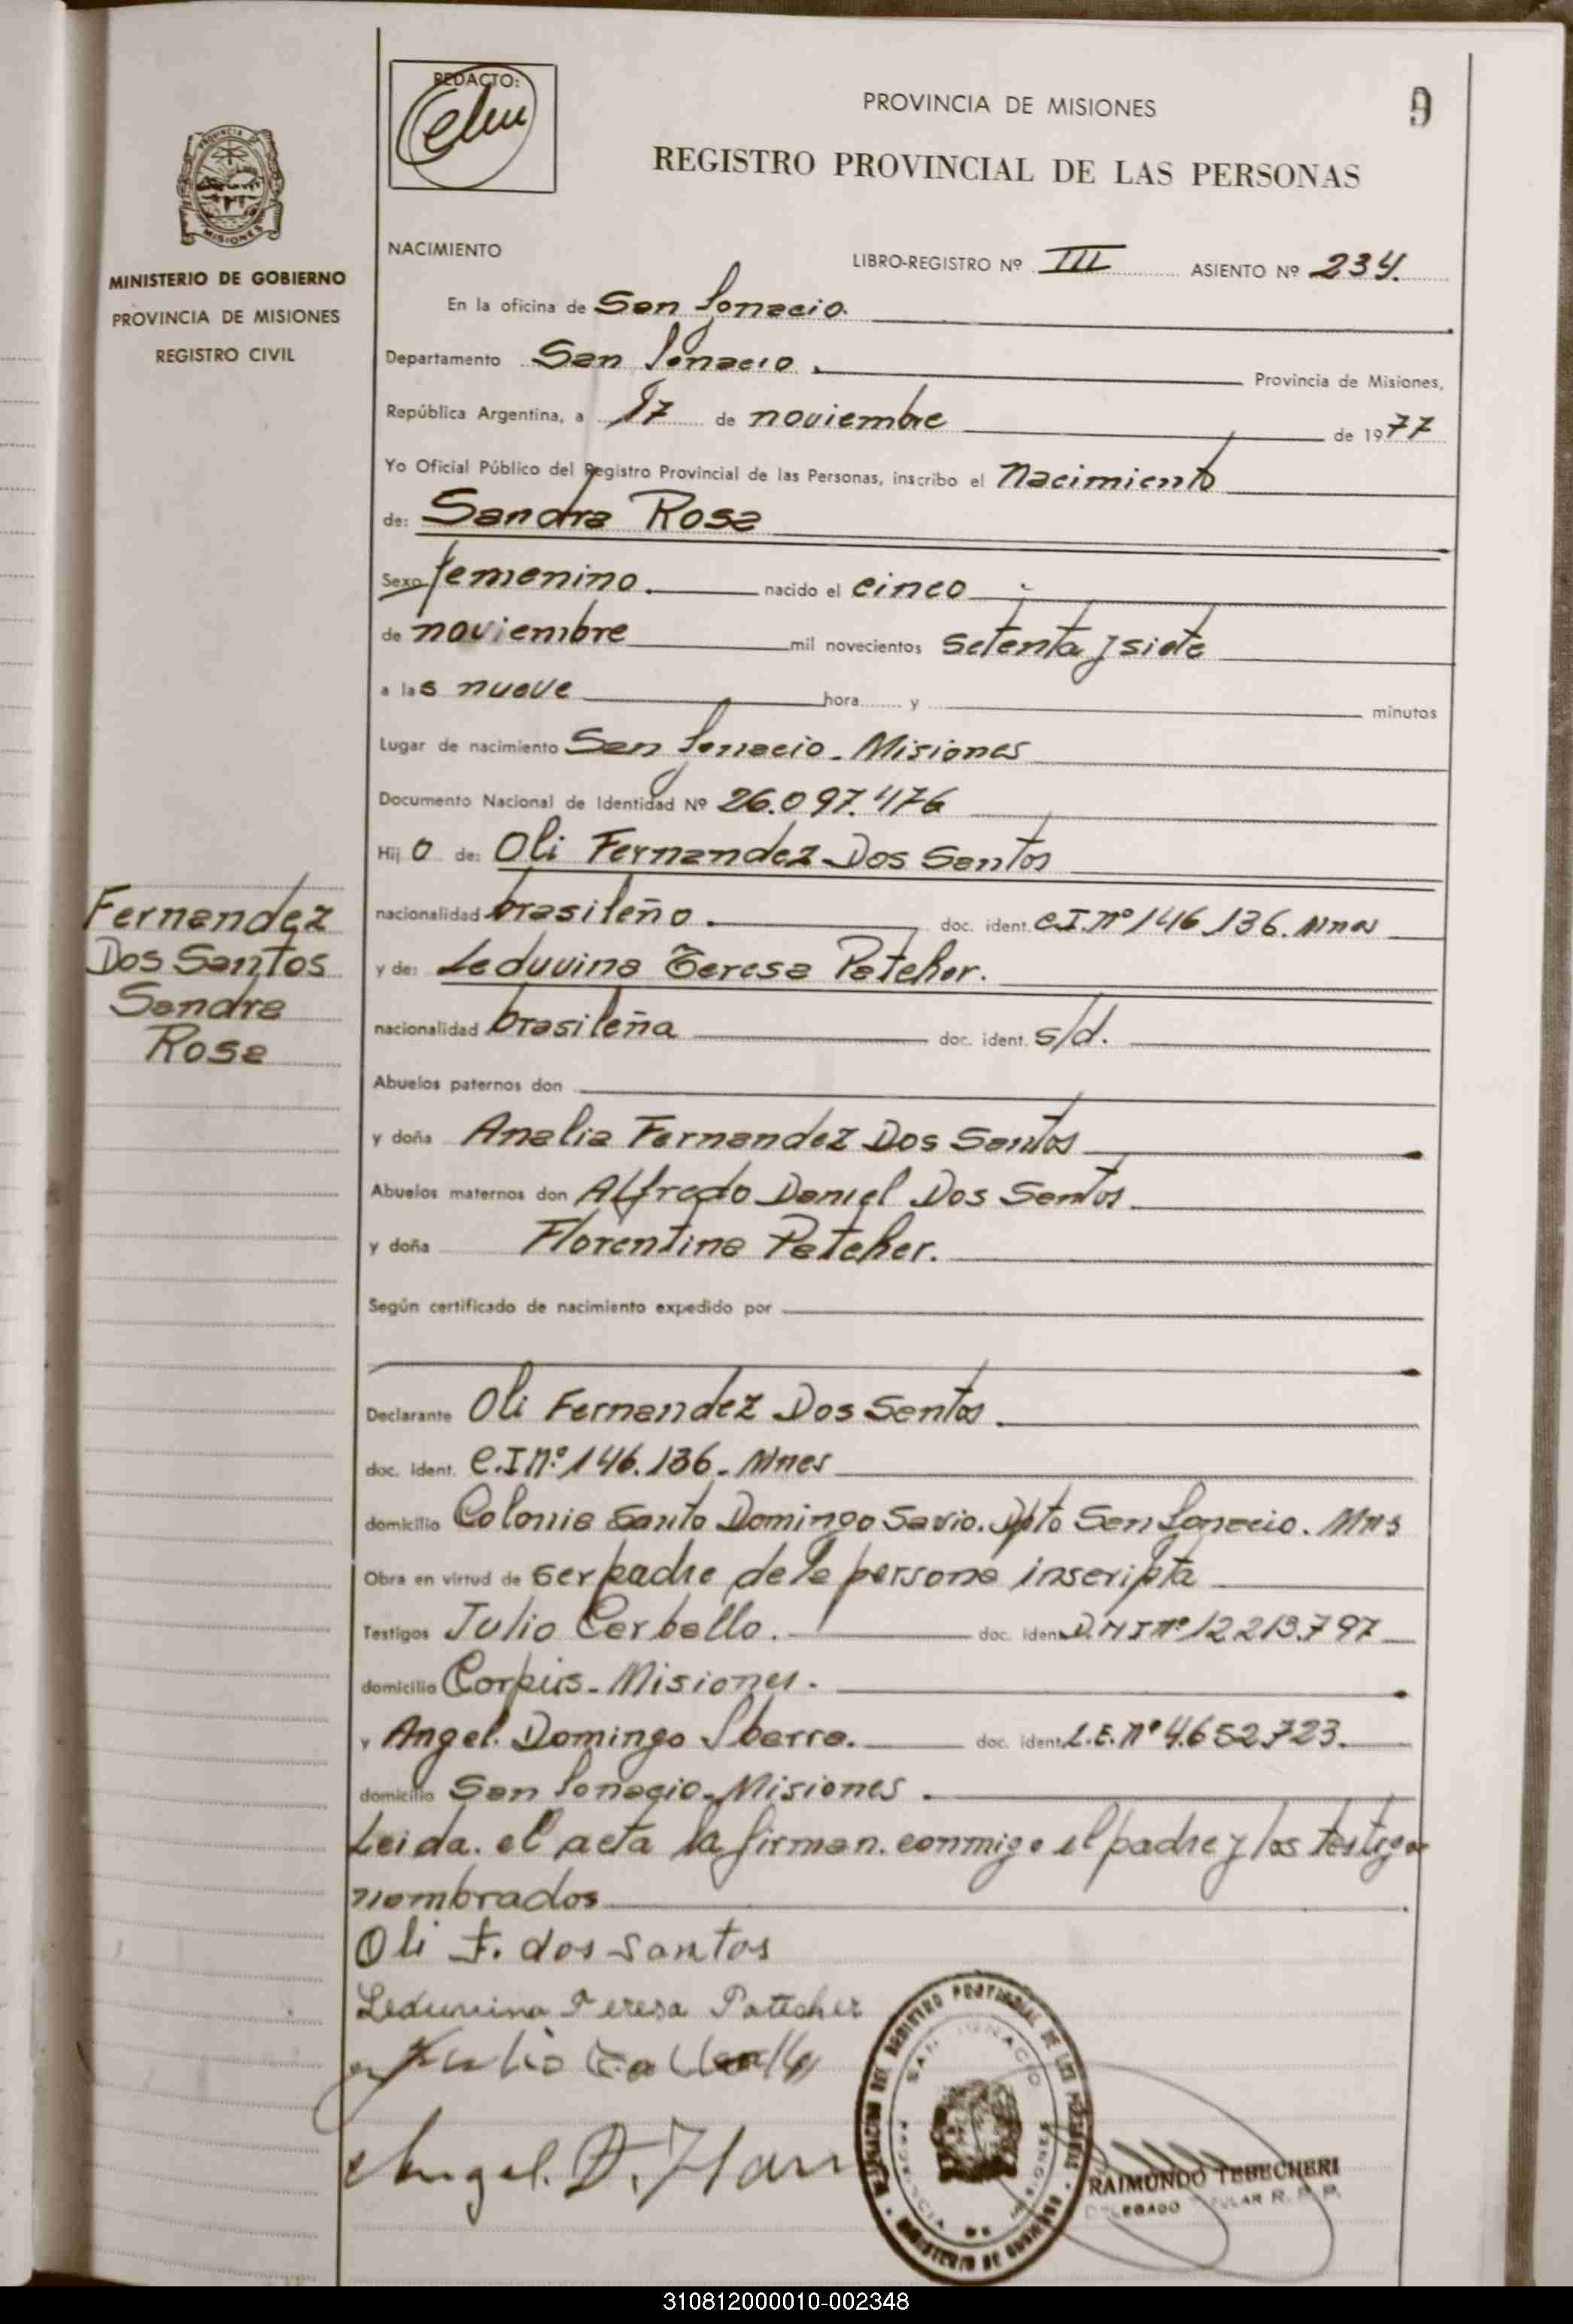 REDACTO:
PROVINCIA DE MISIONES
9
REGISTRO PROVINCIAL DE LAS PERSONAS
MISIONES
MINISTERIO DE GOBIERNO
PROVINCIA DE MISIONES
REGISTRO CIVIL
NACIMIENTO
LIBRO-REGISTRO Nº III ASIENTO Nº 234.
En la oficina de San Ignacio.
Departamento San Ignacio. Provincia de Misiones,
República Argentina, a 17 de noviembre de 1977
Yo Oficial Público del Registro Provincial de las Personas, inscribo el Nacimiento
de: Sandra Rosa
Sexo femenino. nacido el cinco
de noviembre mil novecientos setenta y siete
a las nueve hora y minutos
Lugar de nacimiento San Ignacio - Misiones
Documento Nacional de Identidad Nº 26.097.476
Hijo de: Oli Fernandez Dos Santos
nacionalidad brasileño. doc. ident. C.I. Nº 146.136. Mnes
y de: Leduvina Teresa Patcher.
nacionalidad brasileña doc. ident. s/d.
Fernandez
Dos Santos
Sandra
Rosa
Abuelos paternos don
y doña Analia Fernandez Dos Santos
Abuelos maternos don Alfredo Daniel Dos Santos
y doña Florentina Patcher.
Según certificado de nacimiento expedido por
Declarante Oli Fernandez Dos Santos.
doc. ident. C.I Nº 146.136. Mnes
domicilio Colonia Santo Domingo Savio. Dpto San Ignacio. Mns
Obra en virtud de ser padre de la persona inscripta
Testigos Julio Cerballo. doc. ident. D.N.I Nº 12.213.797
domicilio Corpus - Misiones.
y Angel Domingo Ibarra. doc. ident. L.E. Nº 4.652.723.
domicilio San Ignacio - Misiones.
Leida el acta la firman conmigo el padre y los testigos
nombrados
Oli F. dos santos
Leduvina Teresa Patcher
Julio
Angel. D.
SAN IGNACIO
PROVINCIA DE MISIONES
MINISTERIO DE GOBIERNO
RAIMUNDO TEBECHERI
DELEGADO TITULAR R. P. P.
310812000010-002348